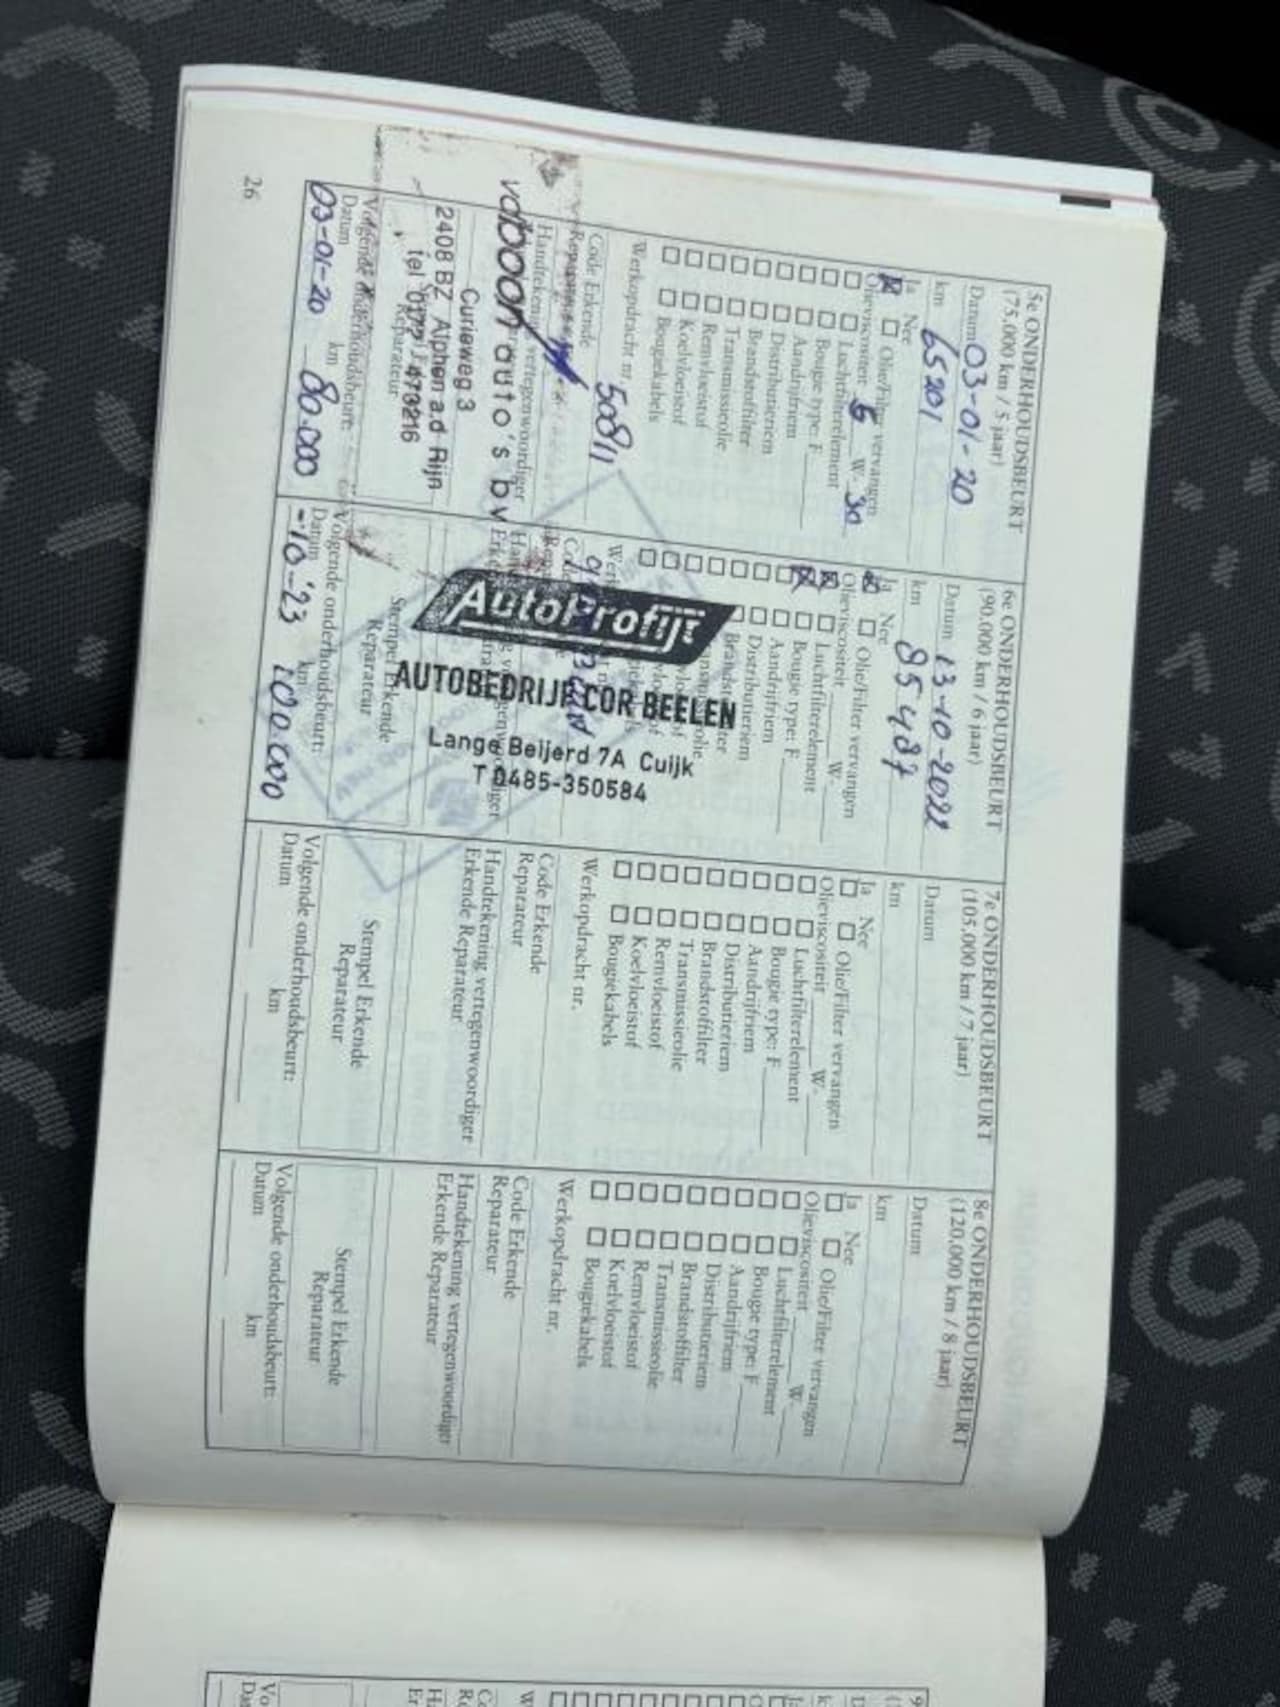 5e ONDERHOUDSBEURT
(75.000 km / 5 jaar)
Datum 03-01-20
km 65201
Ja Nee
Olie/Filter vervangen
Olieviscositeit 5 W- 30
Luchtfilterelement
Bougie type: F
Aandrijfriem
Distributieriem
Brandstoffilter
Transmissieolie
Remvloeistof
Koelvloeistof
Bougiekabels
Werkopdracht nr. 50811
Code Erkende
Reparateur
Handtekening vertegenwoordiger
vdboon auto's bv
Curieweg 3
2408 BZ Alphen a.d Rijn
tel 0172 / 473216
Reparateur
Volgende onderhoudsbeurt:
Datum km
03-01-20 80.000
6e ONDERHOUDSBEURT
(90.000 km / 6 jaar)
Datum 13-10-2022
km 85487
Ja Nee
Olie/Filter vervangen
Olieviscositeit W-
Luchtfilterelement
Bougie type: F
Aandrijfriem
Distributieriem
AutoProfijt
AUTOBEDRIJF COR BEELEN
Lange Beijerd 7A Cuijk
T 0485-350584
Stempel Erkende
Reparateur
Volgende onderhoudsbeurt:
Datum km
-10-'23 100.000
7e ONDERHOUDSBEURT
(105.000 km / 7 jaar)
Datum
km
Ja Nee
Olie/Filter vervangen
Olieviscositeit W-
Luchtfilterelement
Bougie type: F
Aandrijfriem
Distributieriem
Brandstoffilter
Transmissieolie
Remvloeistof
Koelvloeistof
Bougiekabels
Werkopdracht nr.
Code Erkende
Reparateur
Handtekening vertegenwoordiger
Erkende Reparateur
Stempel Erkende
Reparateur
Volgende onderhoudsbeurt:
Datum km
8e ONDERHOUDSBEURT
(120.000 km / 8 jaar)
Datum
km
Ja Nee
Olie/Filter vervangen
Olieviscositeit W-
Luchtfilterelement
Bougie type: F
Aandrijfriem
Distributieriem
Brandstoffilter
Transmissieolie
Remvloeistof
Koelvloeistof
Bougiekabels
Werkopdracht nr.
Code Erkende
Reparateur
Handtekening vertegenwoordiger
Erkende Reparateur
Stempel Erkende
Reparateur
Volgende onderhoudsbeurt:
Datum km
26